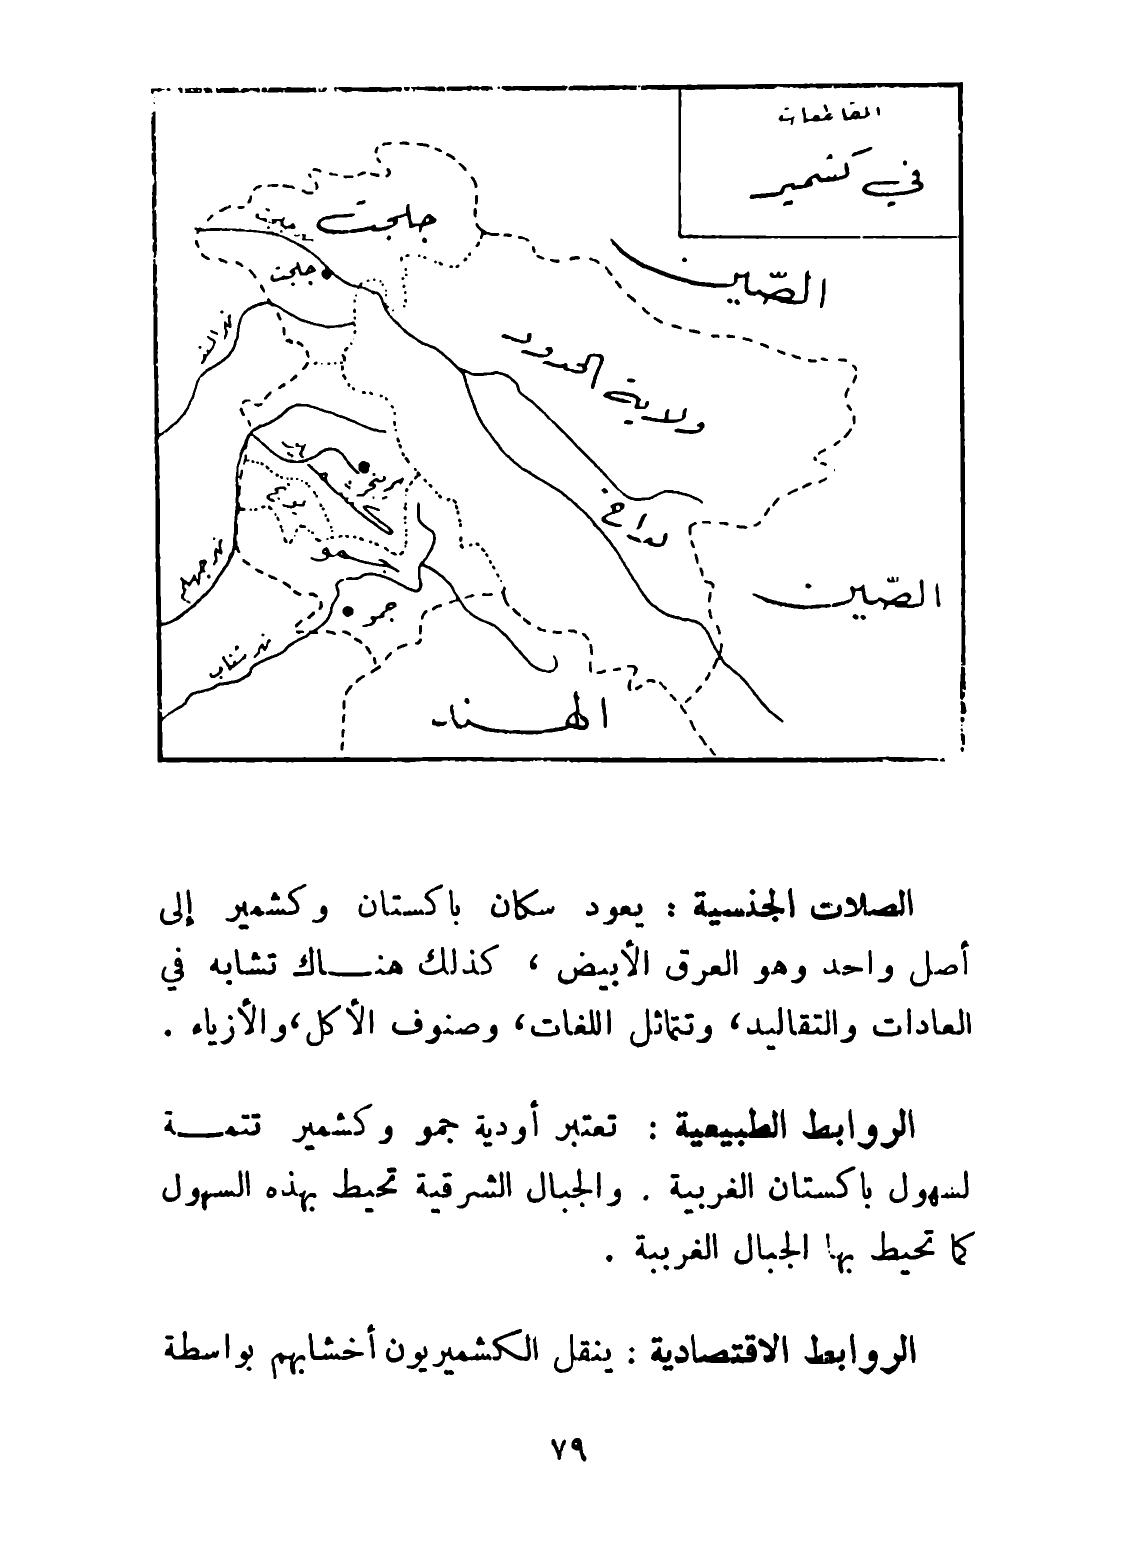 المقاطعات
في كشمير
جلجت
جلجت
الصّين
نهر السند
ولاية الحدود
سرينجر
بونج
لداخ
جمو
نهر جهلم
الصّين
جمو
نهر شناب
الهند
الصلات الجنسية : يعود سكان باكستان وكشمير إلى
أصل واحد وهو العرق الأبيض ، كذلك هنـاك تشابه في
العادات والتقاليد، وتماثل اللغات، وصنوف الأكل،والأزياء .
الروابط الطبيعية : تعتبر أودية جمو وكشمير تتمـة
لسهول باكستان الغربية . والجبال الشرقية تحيط بهذه السهول
كما تحيط بها الجبال الغربية .
الروابط الاقتصادية : ينقل الكشميريون أخشابهم بواسطة
٧٩